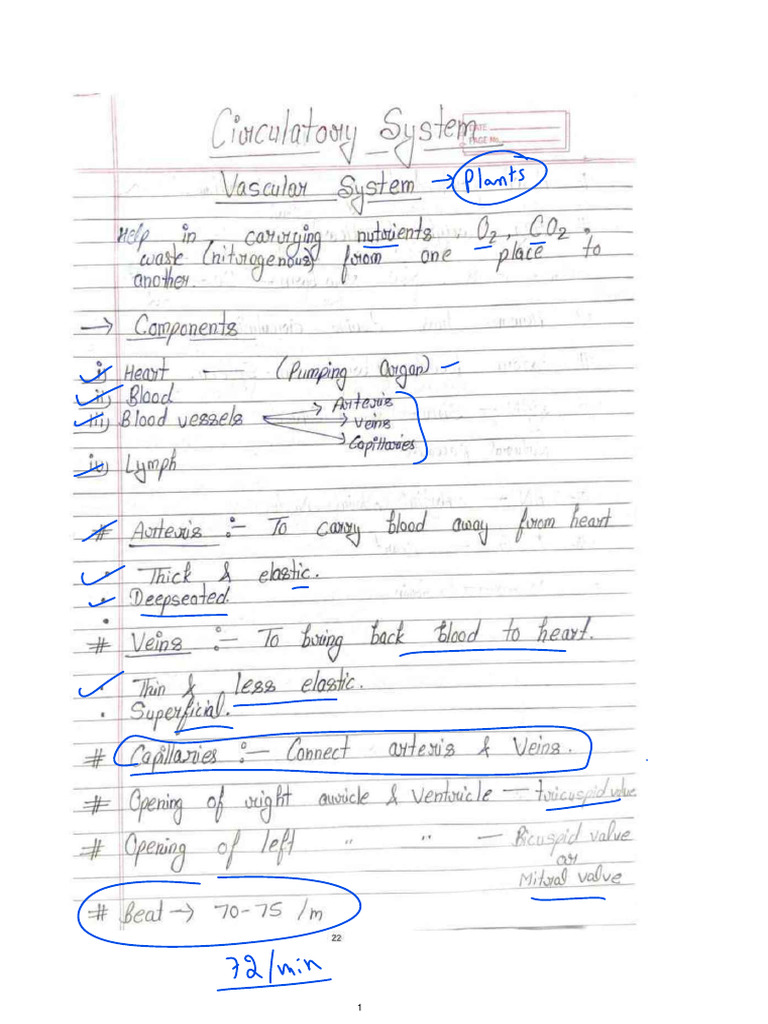 Circulatory System
DATE
PAGE No.
Vascular System → Plants
Help in carrying nutrients O2, CO2
waste (nitrogenous) from one place to
another.
→ Components
i) Heart — (Pumping Organ)
ii) Blood
iii) Blood vessels → Arteris
→ Veins
→ Capillaries
iv) Lymph
# Arteris :- To carry blood away from heart
• Thick & elastic.
• Deepseated
•
# Veins :- To bring back blood to heart.
• Thin & less elastic.
• Superficial.
# Capillaries :- Connect arteris & Veins.
# Opening of right auricle & ventricle — tricuspid valve
# Opening of left " " — Bicuspid valve
or
Mitral valve
# Beat → 70-75 /m
22
72/min
1